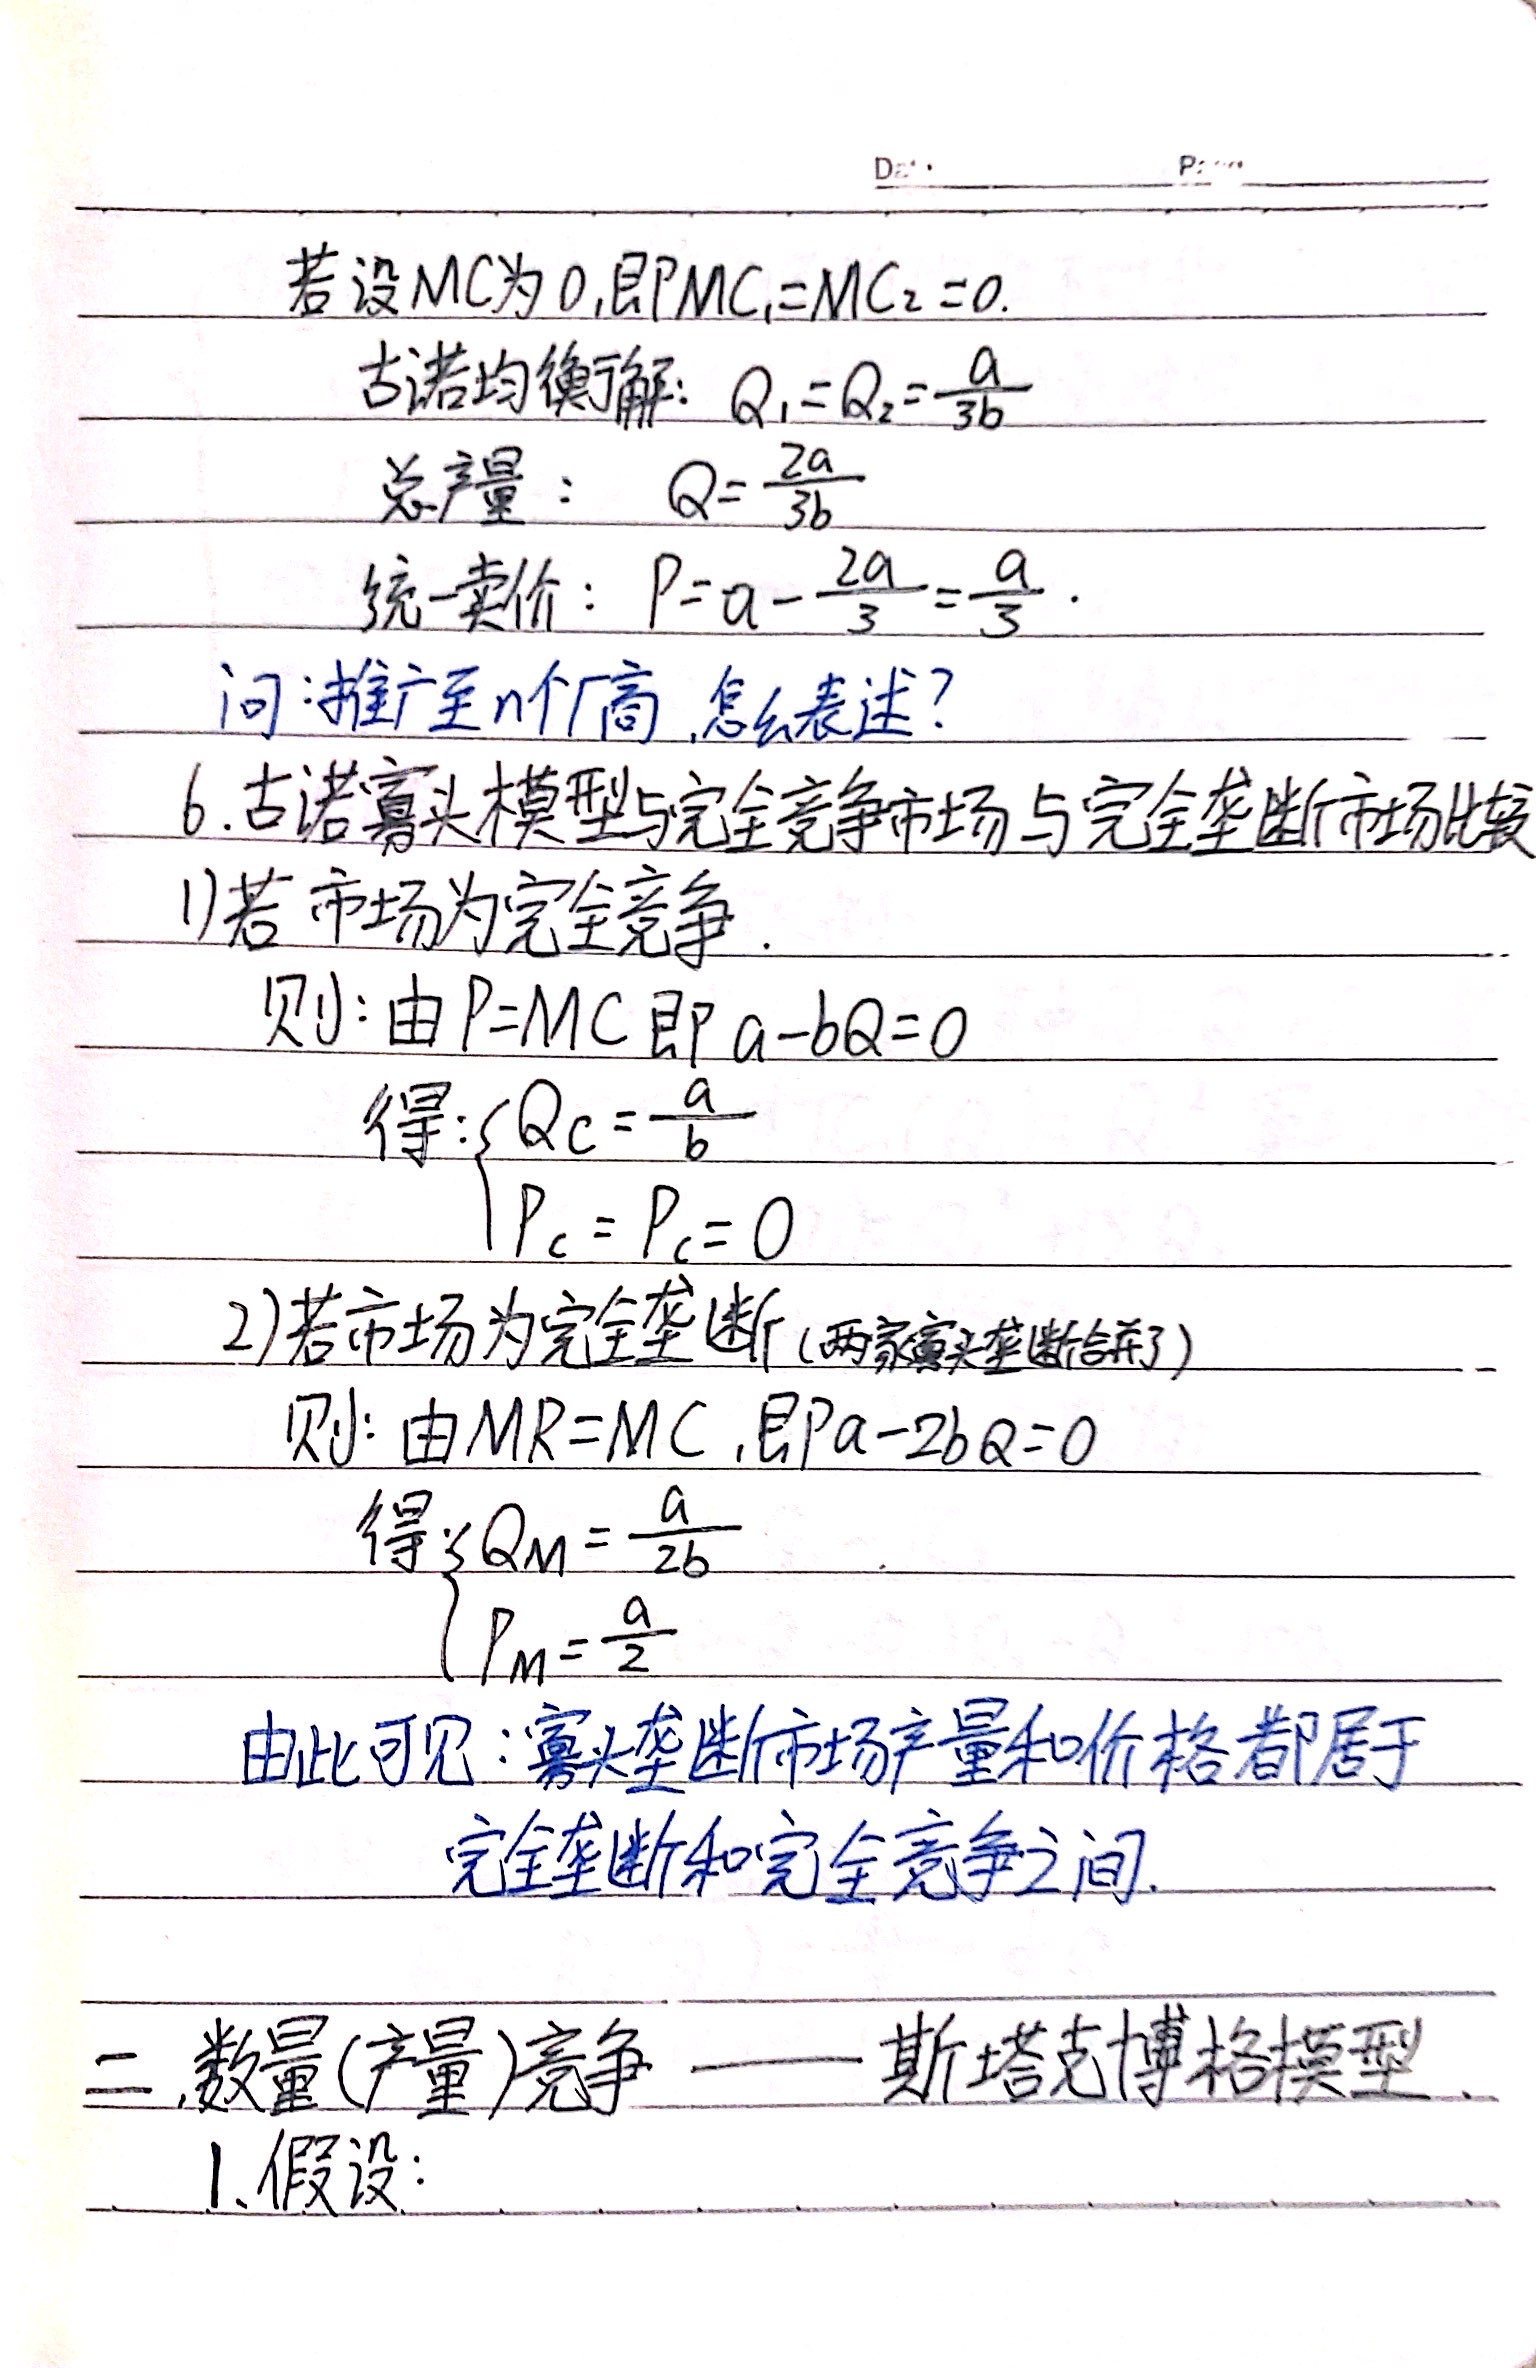 若设MC为0,即MC₁=MC₂=0.
古诺均衡解: Q₁=Q₂=a/3b
总产量: Q=2a/3b
统一卖价: P=a-2a/3=a/3.
问:推广至n个厂商,怎么表述?
6.古诺寡头模型与完全竞争市场与完全垄断市场比较
1)若市场为完全竞争.
则:由P=MC即a-bQ=0
得:{Qc=a/b
Pc=Pc=0
2)若市场为完全垄断(两家寡头垄断合并了)
则:由MR=MC,即a-2bQ=0
得:{QM=a/2b
PM=a/2
由此可见:寡头垄断市场产量和价格都居于
完全垄断和完全竞争之间.
二.数量(产量)竞争——斯塔克博格模型.
1.假设: